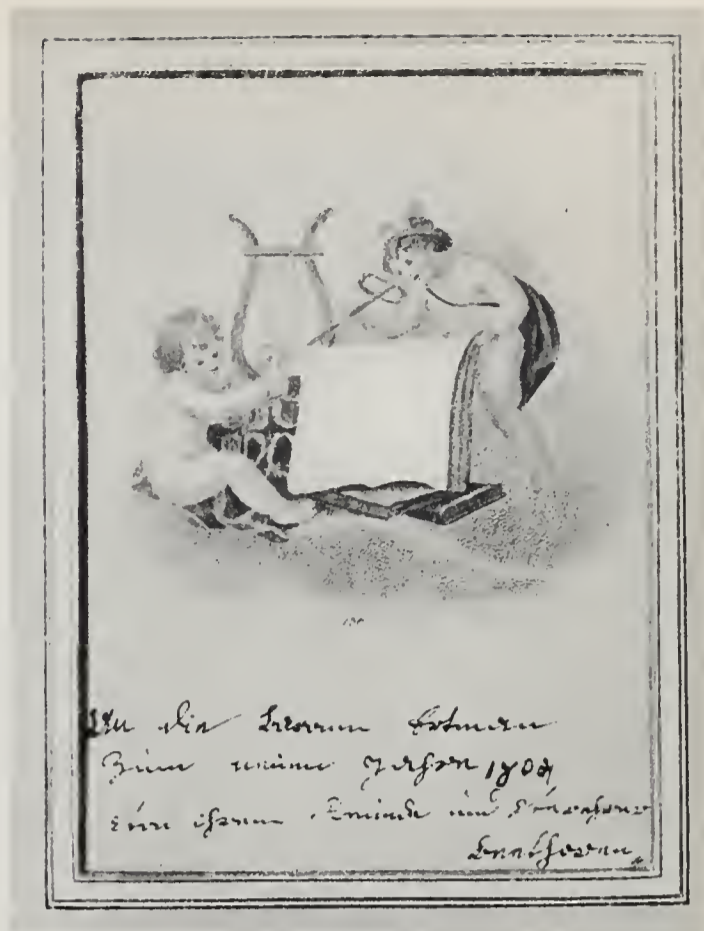 An die Baronin Ertman
Zum neuen Jahre 1804
von ihrem Freunde und Verehrer
Beethoven